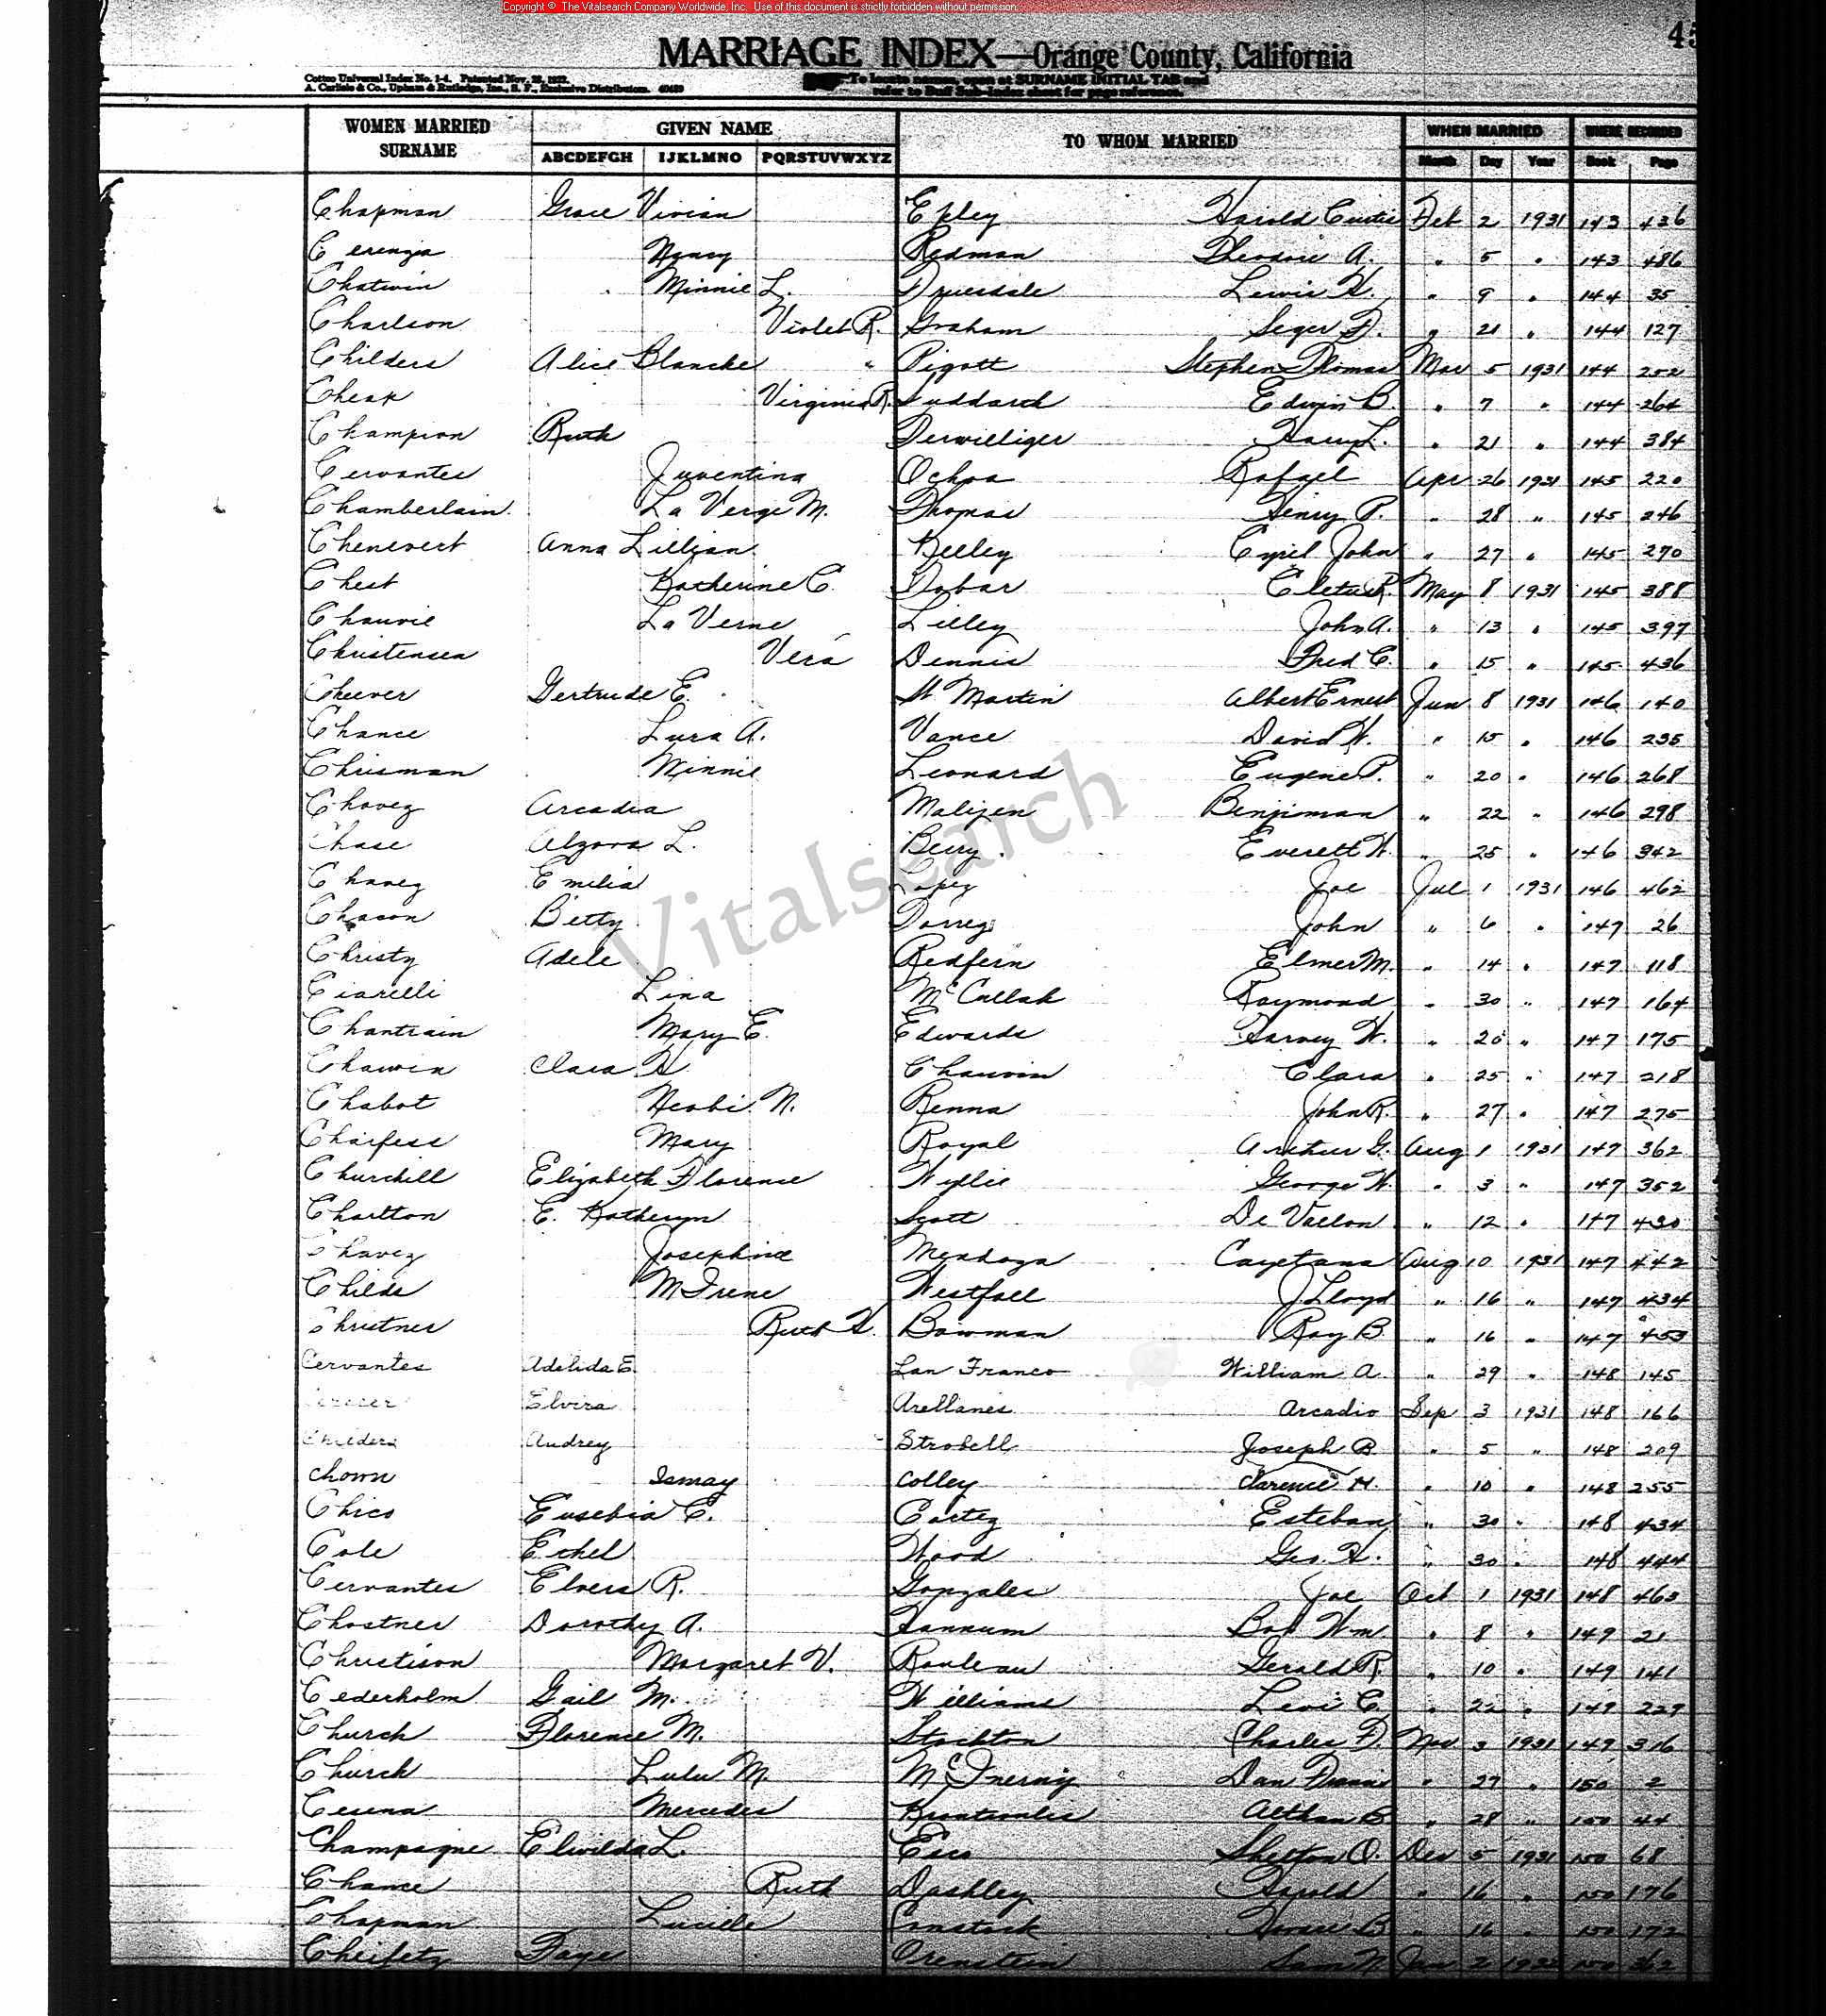 Copyright © The Vitalsearch Company Worldwide, Inc. Use of this document is strictly forbidden without permission.
45
MARRIAGE INDEX—Orange County, California
Cottco Universal Index No. 1-4. Patented Nov. 28, 1922.
A. Carlisle & Co., Upham & Rutledge, Inc., S. F., Exclusive Distributors. 40489
To locate names, open at SURNAME INITIAL TAB and
refer to Buff Sub-Index sheet for page reference.
WOMEN MARRIED SURNAME GIVEN NAME TO WHOM MARRIED WHEN MARRIED WHERE RECORDED
ABCDEFGH IJKLMNO PQRSTUVWXYZ Month Day Year Book Page
Chapman Grace Vivian Epley Harold Curtis Feb 2 1931 143 436
Nancy Redman Theodore A. " 5 " 143 486
Chatwin Minnie L. Truesdale Lewis H. " 9 " 144 35
Charlson Violet R. Graham Seger D. " 21 " 144 127
Childers Alice Blanche " Pigott Stephen Thomas Mar 5 1931 144 252
Cheak Virginia R. Suddarth Edwin B. " 7 " 144 264
Champion Ruth Terwilliger Harry L. " 21 " 144 384
Cervantes Juventina Ochoa Rafael Apr 26 1931 145 220
Chamberlain La Verge M. Thomas Henry P. " 28 " 145 246
Chenevert Anna Lillian Kelley Cyril John " 27 " 145 270
Chest Katherine C. Dobar Cletus R. May 8 1931 145 388
Chauvie La Verne Lilley John A. " 13 " 145 397
Christensen Vera Dennis Fred C. " 15 " 145 436
Cheever Gertrude E. St Martin Albert Ernest Jun 8 1931 146 140
Chance Lura A. Vance David W. " 15 " 146 235
Chrisman Minnie Leonard Eugene P. " 20 " 146 268
Chavez Arcadia Malizen Benjiman " 22 " 146 298
Chase Alzora L. Berry Everett W. " 25 " 146 342
Chavez Emilia Lopez Joe Jul 1 1931 146 462
Chason Betty Torrez John " 6 " 147 26
Christy Adele Redfern Elmer M. " 14 " 147 118
Ciarelli Lina McCullah Raymond " 30 " 147 164
Chantrain Mary E. Edwards Harvey W. " 20 " 147 175
Chauvin Clara H Chauvin Clara " 25 " 147 218
Chabot N. Renna John R. " 27 " 147 275
Chaifess Mary Royal Arthur G. Aug 1 1931 147 362
Churchill Elizabeth Florence Wyllie George W. " 3 " 147 352
Charlton E. Katheryn Scott De Vallon " 12 " 147 430
Chavez Josephine Mendoza Cayetana Aug 10 1931 147 442
Childs M Irene Westfall J Lloyd " 16 " 147 434
Christner Ruth H. Bowman Ray B. " 16 " 147 453
Cervantes Adelida E. Lan Franco William A. " 29 " 148 145
Elvira Arellanes Arcadio Sep 3 1931 148 166
Childers Audrey Strobell Joseph B. " 5 " 148 209
Chown Ismay Colley Clarence H. " 10 " 148 255
Chico Eusebia C. Cortez Esteban " 30 " 148 434
Cole Ethel Wood Geo. H. " 30 " 148 444
Cervantes Elvera R. Gonzales Joe Oct 1 1931 148 463
Chostner Dorothy A. Hannum Bob Wm. " 8 " 149 21
Christison Margaret V. Rouleau Gerald R. " 10 " 149 141
Cederholm Gail M. Williams Levi C. " 22 " 149 229
Church Florence M. Stockton Charles D. Nov 3 1931 149 316
Church Lulu M. McInerny Dan Francis " 27 " 150 2
Cesena Mercedes " 28 " 150 44
Champagne Elwilda L. Shelton O. Dec 5 1931 150 68
Chance Ruth Dashley Harold " 16 " 150 176
Chapman Lucille Comstock B " 16 " 150 172
Cheifetz Faye Orenstein Sam N. Jan 2 1932 150 362
Vitalsearch